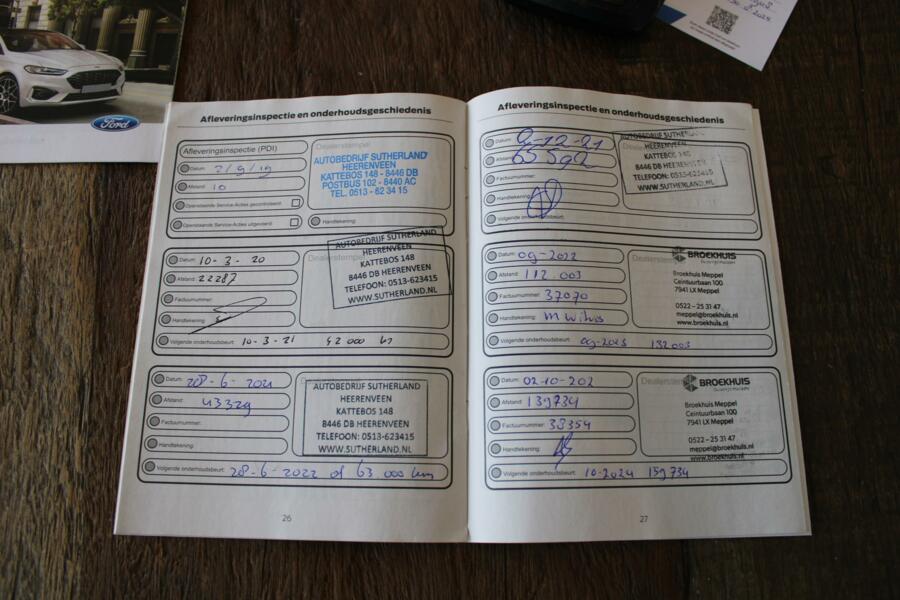 Ford
Afleveringsinspectie en onderhoudsgeschiedenis
Afleveringsinspectie (PDI)
Datum: 2/9/19
Afstand: 10
Openstaande Service-Acties gecontroleerd:
Openstaande Service-Acties uitgevoerd:
Dealerstempel
AUTOBEDRIJF SUTHERLAND
HEERENVEEN
KATTEBOS 148 - 8446 DB
POSTBUS 102 - 8440 AC
TEL. 0513 - 62 34 15
Handtekening:
Datum: 10-3-20
Afstand: 22287
Factuurnummer:
Handtekening:
Volgende onderhoudsbeurt: 10-3-21 42000 km
AUTOBEDRIJF SUTHERLAND
HEERENVEEN
KATTEBOS 148
8446 DB HEERENVEEN
TELEFOON: 0513-623415
WWW.SUTHERLAND.NL
Datum: 28-6-2021
Afstand: 43329
Factuurnummer:
Handtekening:
Volgende onderhoudsbeurt: 28-6-2022 of 63.000 km
AUTOBEDRIJF SUTHERLAND
HEERENVEEN
KATTEBOS 148
8446 DB HEERENVEEN
TELEFOON: 0513-623415
WWW.SUTHERLAND.NL
26
Afleveringsinspectie en onderhoudsgeschiedenis
Datum: 9-12-21
Afstand: 65592
Factuurnummer:
Handtekening:
Volgende onderhoudsbeurt:
AUTOBEDRIJF SUTHERLAND
HEERENVEEN
KATTEBOS 148
8446 DB HEERENVEEN
TELEFOON: 0513-623415
WWW.SUTHERLAND.NL
Datum: 09-2022
Afstand: 112.003
Factuurnummer: 37070
Handtekening:
Volgende onderhoudsbeurt: 09-2023 132003
Dealerstempel
BROEKHUIS
Broekhuis Meppel
Ceintuurbaan 100
7941 LX Meppel
0522 - 25 31 47
meppel@broekhuis.nl
www.broekhuis.nl
Datum: 02-10-202
Afstand: 139734
Factuurnummer: 38354
Handtekening:
Volgende onderhoudsbeurt: 10-2024 159734
Dealerstempel
BROEKHUIS
Broekhuis Meppel
Ceintuurbaan 100
7941 LX Meppel
0522 - 25 31 47
meppel@broekhuis.nl
www.broekhuis.nl
27